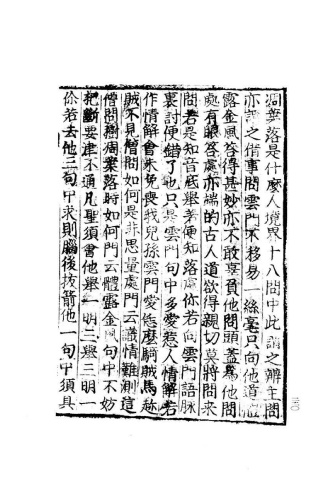 凋葉落是什麼人境界十八問中此謂之辨主問
亦謂之借事問雲門不移易一絲毫只向他道體
露金風答得甚妙亦不敢辜負他問頭蓋為他問
處有眼答處亦端的古人道欲得親切莫將問來
問若是知音底舉著便知落處你若向雲門語脉
裏討便錯了也只是雲門句中多愛惹人情解若
作情解會未免喪我兒孫雲門愛恁麼騎賊馬趂
賊不見僧問如何是非思量處門云識情難測這
僧問樹凋葉落時如何門云體露金風句中不妨
把斷要津不通凡聖須會他舉一明三舉三明一
你若去他三句中求則腦後拔箭他一句中須具